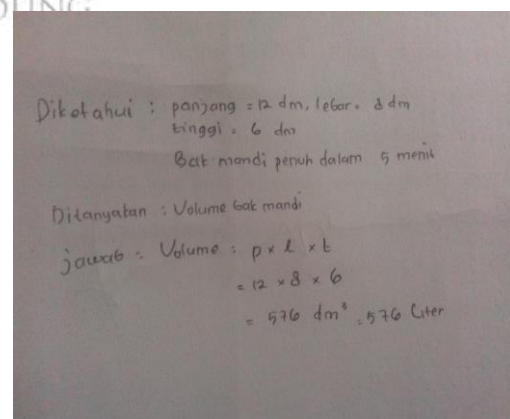 Diketahui : panjang = 12 dm, lebar = 8 dm
tinggi = 6 dm
Bak mandi penuh dalam 5 menit
Ditanyakan : Volume bak mandi
jawab : Volume : p x l x t
= 12 x 8 x 6
= 576 dm³ = 576 Liter